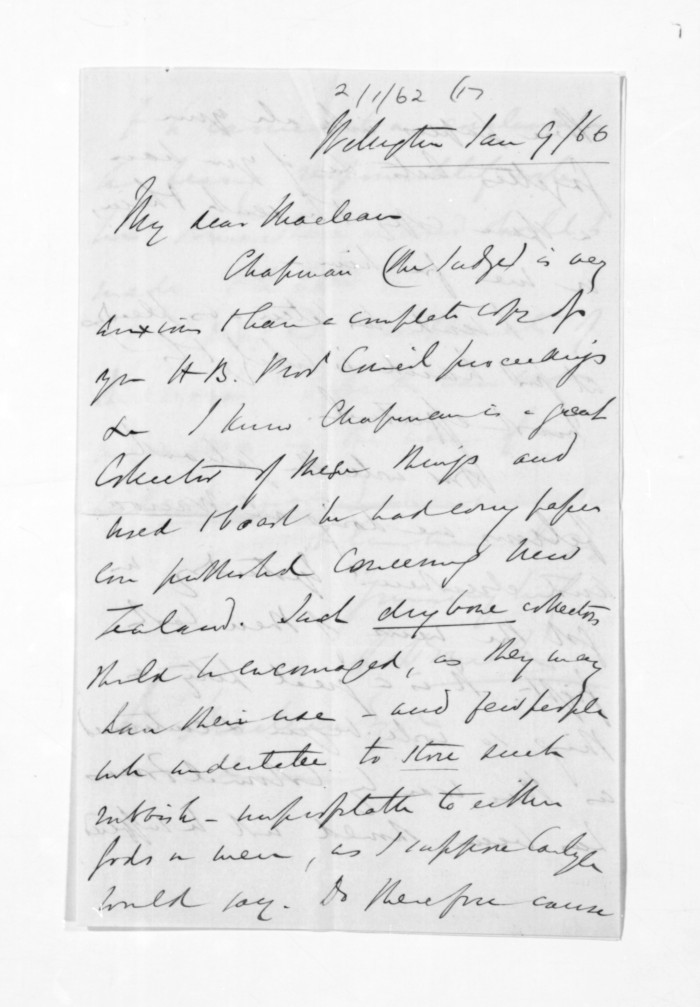 2/1/62 (17
Wellington Jan 9/66
My dear Maclean
Chapman (the Judge) is very
anxious t have a complete copy of
yr H B. Prov Council proceedings
&c I know Chapman is a great
Collector of these things and
used t boast he had every paper
ever published concerning New
Zealand. Such dry bone collectors
shld be encouraged, as they may
have their use – and few people
wd undertake to store such
rubbish – unprofitable to either
Gods or men, as I suppose Carlyle
would say. Do therefore cause